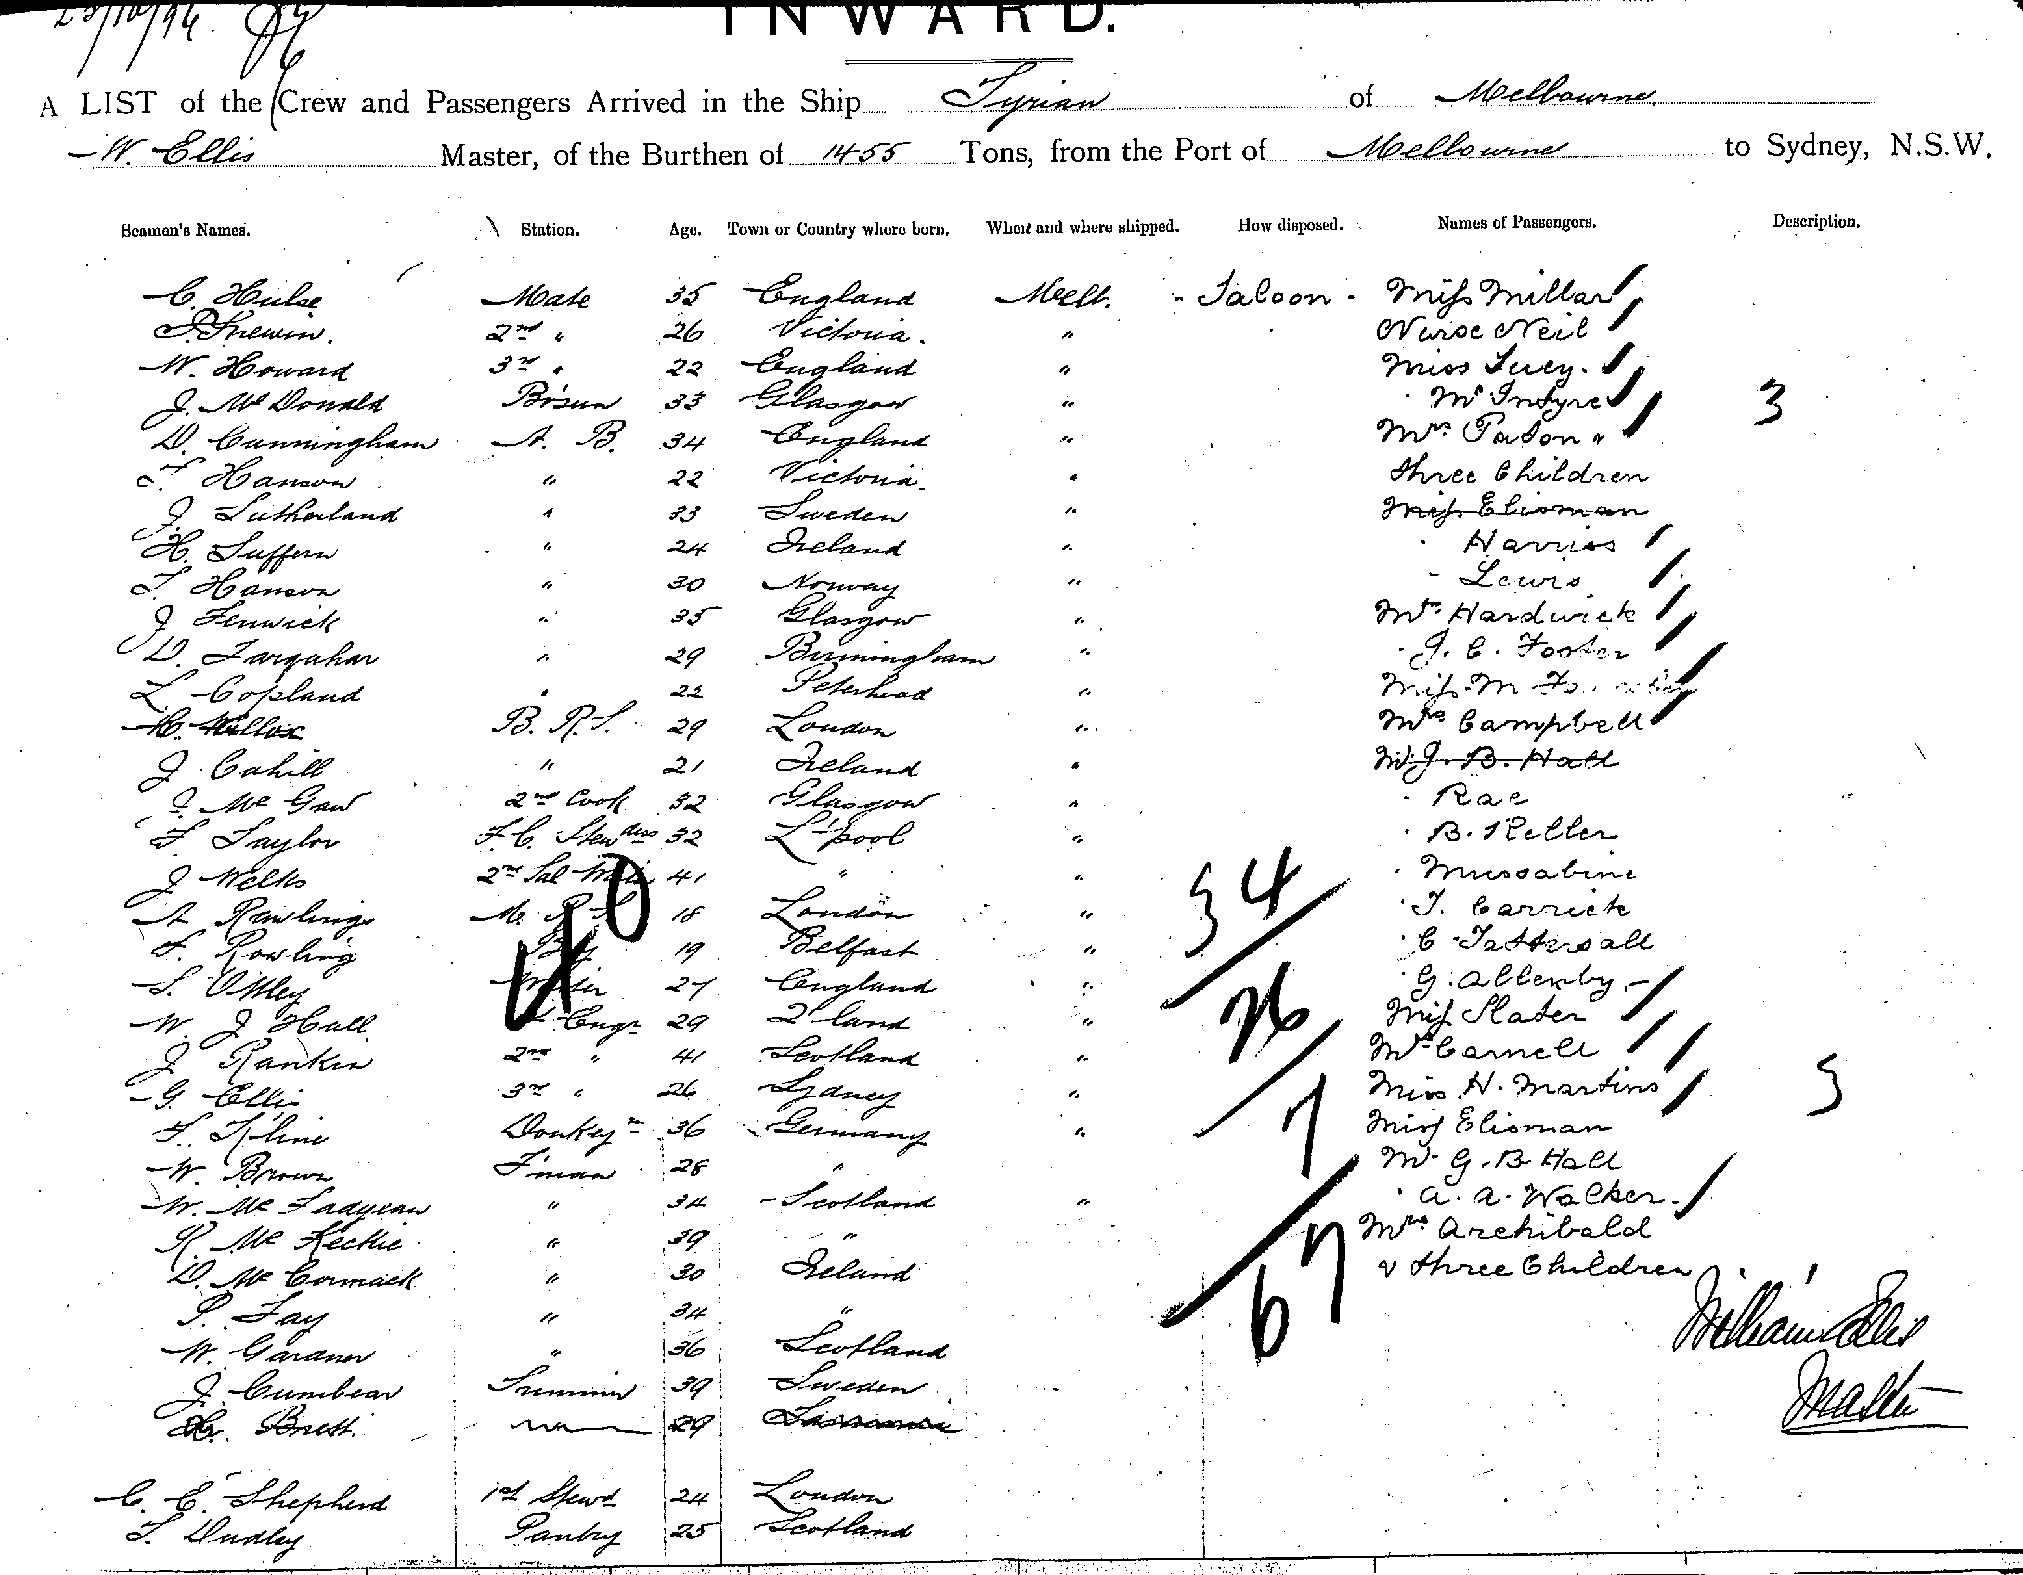 23/10/96
INWARD.
A LIST of the Crew and Passengers Arrived in the Ship Tyrian of Melbourne
W. Ellis Master, of the Burthen of 1455 Tons, from the Port of Melbourne to Sydney, N.S.W.
Seamen's Names. Station. Age. Town or Country where born. When and where shipped. How disposed. Names of Passengers. Description.
C. Hulse Mate 35 England Melb. - Saloon - Miss Millar
Trewin. 2nd " 26 Victoria. " Nurse Neil
W. Howard 3rd " 22 England " Miss Lucy.
J. McDonald Bosun 33 Glasgow " " McIntyre 3
D. Cunningham A. B. 34 England " Mrs Paton &
Hanson " 22 Victoria. " three Children
J. Sutherland " 33 Sweden " Miss Elisman
H. Suffern " 24 Ireland " " Harriss
T. Hanson " 30 Norway " " Lewis
J. Fenwick " 35 Glasgow " Mr Hardwick
D. Farquhar " 29 Birmingham " " J. C. Foster
L. Copland " 22 Peterhead " Miss M
Willox B. R. S. 29 London " Mrs Campbell
J. Cahill " 21 Ireland " Mr J. B. Hall
J. McGaw 2nd Cook 32 Glasgow " " Rae
F. Taylor F. C. Stewdess 32 L'pool " " B. Keller
J. Welks 2nd Sal 41 " " " Mussabini
A Rawlings M. R. S. 18 London " " T. Carrick
F. Rowling Boy 19 Belfast " " C Tattersall
S. Ottley 27 England " " G. Allenby
W. J. Hall Engr 29 Q'land " Miss Slater
J Rankin 2nd " 41 Scotland " Mr Carnell
G. Ellis 3rd " 26 Sydney " Miss H. Martins
F. Kline Donkeyn 36 Germany " Miss Elisman
W. Brown F'man 28 " Mr G. B Hall
W. McFadyean " 34 Scotland " " A. A. Walker.
R. McKechie " 39 " Mrs Archibald
D. McCormack " 30 Ireland & three Children
P. Fay " 34 "
W. Gardner " 36 Scotland
J. Cumbear Trimmer 39 Sweden
Brett. 29 Tasmania
C. E. Shepherd 1st Stewd 24 London
T. Dudley Pantry 25 Scotland
40
34
26
7
67
5
William Ellis
Master